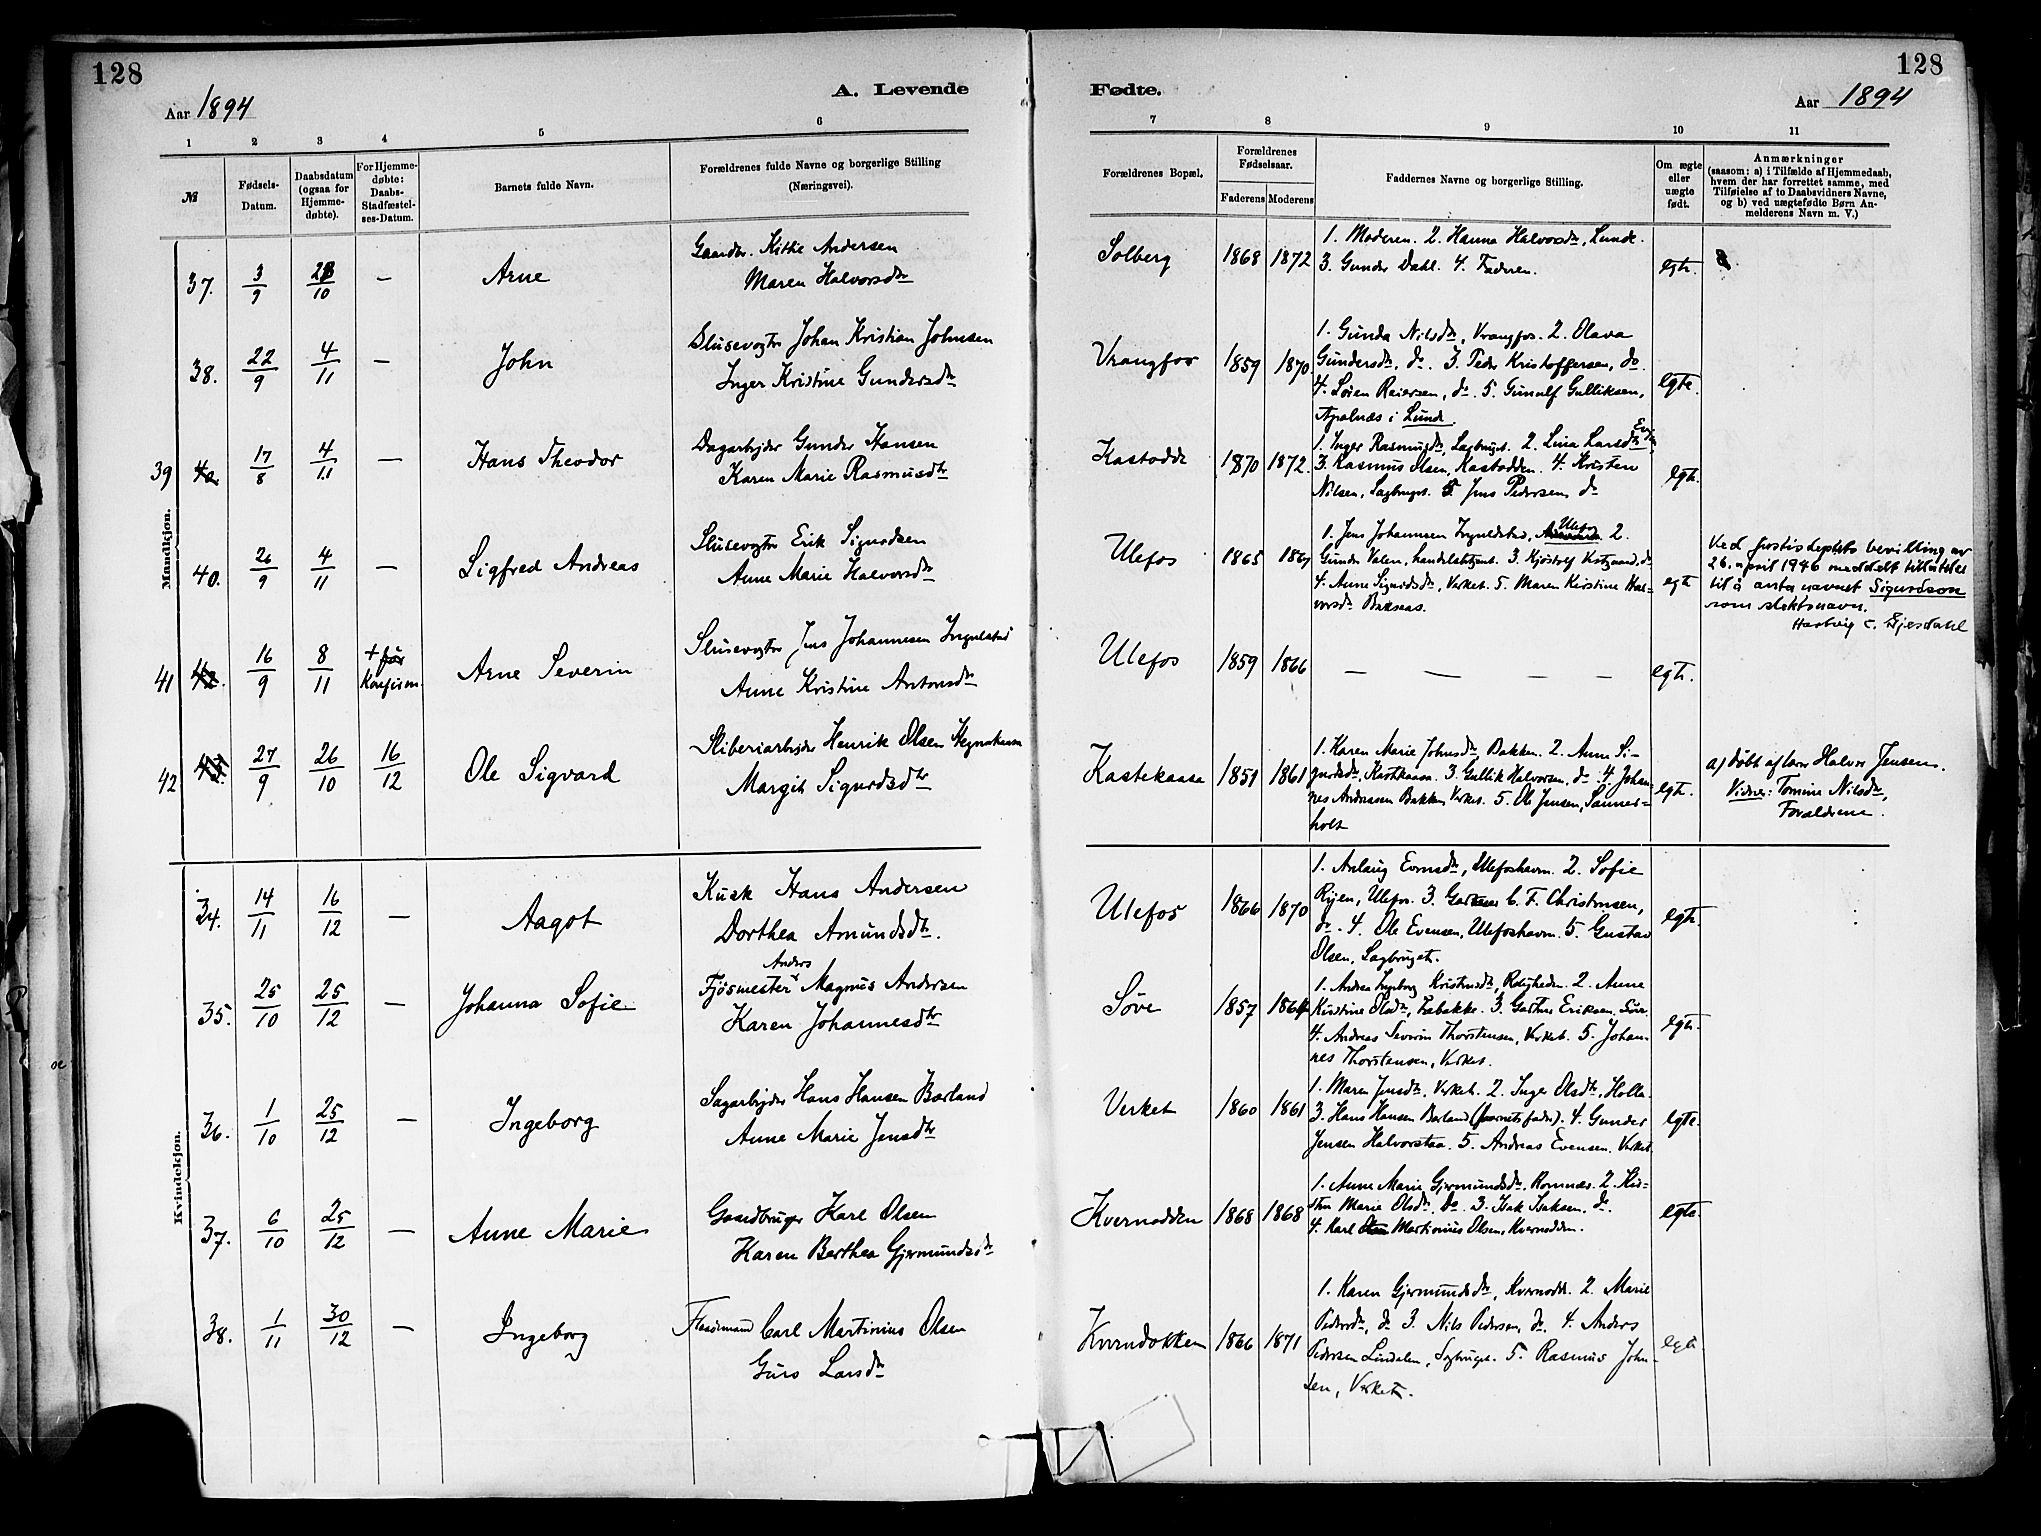 128
Aar 1894
A. Levende
1 2 3 4 5 6
№
Fødsels-Datum.
Daabsdatum (ogsaa for Hjemme-døbte).
For Hjemme-døbte: Daabs-Stadfæstel-ses-Datum.
Barnets fulde Navn.
Forældrenes fulde Navne og borgerlige Stilling (Næringsvei).
Mandkjøn.
37. 3/9 28/10 — Arne
Gaardbr. Kittil Andersen
Maren Halvorsdtr
38. 22/9 4/11 — John
Slusevogter Johan Kristian Johnsen
Inger Kristine Gundersdtr
39 17/8 4/11 — Hans Theodor
Dagarbejder Gunder Hansen
Karen Marie Rasmusdtr
40. 26/9 4/11 — Sigfred Andreas
Slusevogter Erik Sigurdsen
Anne Marie Halvorsdtr
41 16/9 8/11 + før Konfirm. Arne Severin
Slusevogter Jens Johannesen Ingulstad
Anne Kristine Antonsdtr
42 27/9 26/10 16/12 Ole Sigvard
Sliberiarbejder Henrik Olsen
Margit Sigurdsdtr
Kvindekjøn.
34. 14/11 16/12 — Aagot
Kusk Hans Andersen
Dorthea Amundsdtr.
35. 25/10 25/12 — Johanna Sofie
Anders
Fjøsmester Magnus Andersen
Karen Johannesdtr
36. 1/10 25/12 — Ingeborg
Sagarbejder Hans Hansen Barland
Anne Marie Jensdtr
37. 6/10 25/12 — Anne Marie
Gaardbruger Karl Olsen
Karen Berthea Gjermundsdtr
38. 1/11 30/12 — Ingeborg
Carl Martinius Olsen
Guro Larsdtr
128
Fødte.
Aar 1894
7 8 9 10 11
Forældrenes Bopæl.
Forældrenes Fødselsaar.
Faderens Moderens
Faddernes Navne og borgerlige Stilling.
Om ægte eller uægte født.
Anmærkninger
(saasom: a) i Tilfælde af Hjemmedaab,
hvem der har forrettet samme, med
Tilføielse af to Daabsvidners Navne,
og b) ved uægtefødte Børn An-
melderens Navn m. V.)
Solberg 1868 1872
1. Moderen. 2. Hanna Halvorsdtr, Lunde.
3. Gunder Dahl. 4. Faderen.
egte.
Vrangfos 1859 1870
1. Gunda Nilsdtr, Vrangfos. 2. Olava
Gundersdtr, do. 3. Peder Kristoffersen, do.
4. Søren Reiersen, do. 5. Gunulf Gulliksen,
Apalnæs i Lunde.
egte.
Kastodde 1870 1872.
1. Inger Rasmusdtr, Sagbruget. 2. Lina Larsdtr
3. Rasmus Olsen, Kastodden. 4. Kristen
Nilsen, Sagbruget. 5. Jens Pedersen, do
egte.
Ulefos 1865 1867
1. Jens Johannesen Ingulstad, Ulefos 2.
Gunder Valen, handelsbetjent. 3. Kjøstolf
4. Anne Sigurdsdtr, Verket. 5. Maren Kirstine Hal-
vorsdtr Bakaas.
egte
Ved justisdeptets bevilling av
26. april 1946 meddelt tillatelse
til å anta navnet Sigurdson
som slektsnavn.
Hartvig C. Gjesdahl
Ulefos 1859 1866
— — — —
egte.
Kastekaasa 1851 1861
1. Karen Marie Johnsdtr Bakken. 2. Anne Si-
gurdsdtr, Kastekaasa. 3. Gullik Halvorsen, do. 4. Johan-
nes Andreasen Bakken Verket. 5. Ole Jensen, Sanner-
holt
egte.
a) døbt af lærer Halvor Jensen.
Vidner: Tomine Nilsdtr,
Forældrene.
Ulefos 1866 1870
1. Anlaug Evensdtr, Ulefoshavn. 2. Sofie
Rijen, Ulefos. 3. Gartner C. F. Christensen,
do. 4. Ole Evensen, Ulefoshavn. 5. Gustav
Olsen, Sagbruget.
egte.
Søve 1857 1864
1. Andrea Ingeborg Kristensdtr, Roligheden. 2. Anne
Kirstine Olsdtr, Fæbakke. 3. Gartner Eriksen Søve
4. Andreas Severin Thorstensen, Verket. 5. Johan-
nes Thorstensen, Verket.
egte.
Verket 1860 1861
1. Maren Jensdtr, Verket. 2. Inger Olsdtr, Holla
3. Hans Hansen Barland (barnets fader). 4. Gunder
Jensen Halvorstaa. 5. Andreas Evensen. Verket
egte.
Kvernodden 1868 1868
1. Anne Marie Gjermundsdtr. Romnæs. 2. Kir-
sten Marie Olsdtr. Do. 3. Isak Isaksen. do.
4. Karl Martinius Olsen, Kvernodden.
egte.
Kverndokken 1866 1871
1. Karen Gjermundsdtr, Kvernodd. 2. Marie
Pedersdtr, do 3. Nils Pedersen, do. 4. Anders
Pedersen Lindalen, Sagbruget. 5. Rasmus John-
sen, Verket.
egte